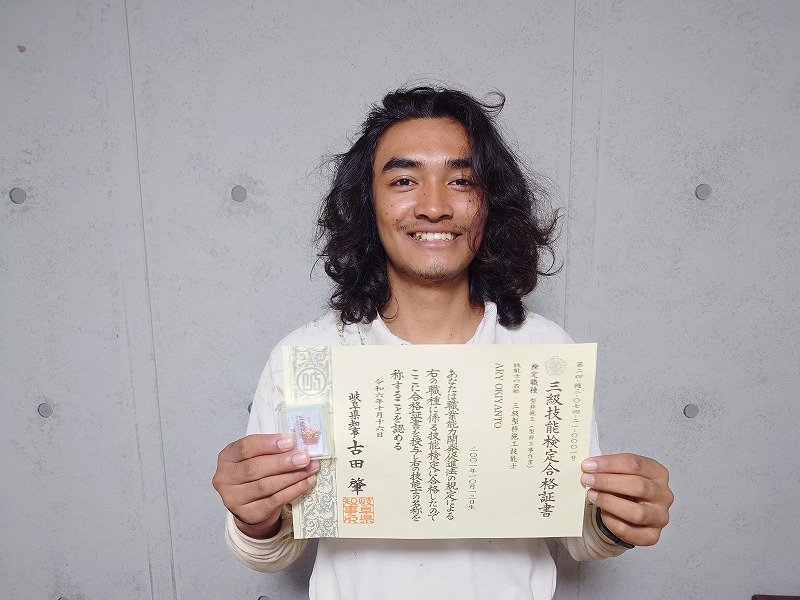 第二四(随)二〇七四-二一-〇〇〇一号
三級技能検定合格証書
検定職種 型枠施工(型枠工事作業)
技能士の名称 三級型枠施工技能士
ARY OKIYANTO
二〇〇二年一〇月一二日生
あなたは職業能力開発促進法の規定による
右の職種に係る技能検定に合格したので
ここに合格証書を授与し右の技能士の名称を
称することを認める
令和六年十月十六日
岐阜県知事 古田 肇
岐阜県
知事印